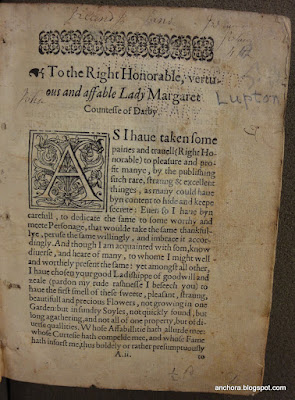 To the Right Honorable, vertu-
ous and affable Lady Margaret
Countesse of Darby.
Lupton
AS I haue taken some
paines and trauell (Right Ho-
norable) to pleasure and pro-
fit manye, by the publishing
such rare, strange & excellent
thinges, as many could haue
byn content to hide and keepe
secrete: Euen so I haue byn
carefull, to dedicate the same to some worthy and
meete Personage, that woulde take the same thankful-
lye, peruse the same willingly, and imbrace it accor-
dingly. And though I am acquainted with som, know
diuerse, and heare of many, to whome I might well
and worthely present the same: yet amongst all other,
I haue chosen your good Ladishippe of goodwill and
zeale (pardon my rude rashnesse I beseech you) to
haue the first smell of these sweete, pleasant, strange,
beautifull and precious Flowers, not growing in one
Garden but in sundry Soyles, not quickly found, but
long a gathering, and not all of one property, but of di-
uerse qualities. Whose Affabillitie hath allurde mee:
whose Curtesie hath compelde mee, and whose Fame
hath inforst me, thus boldely or rather presumptuously
A.ii. to
anchora.blogspot.com